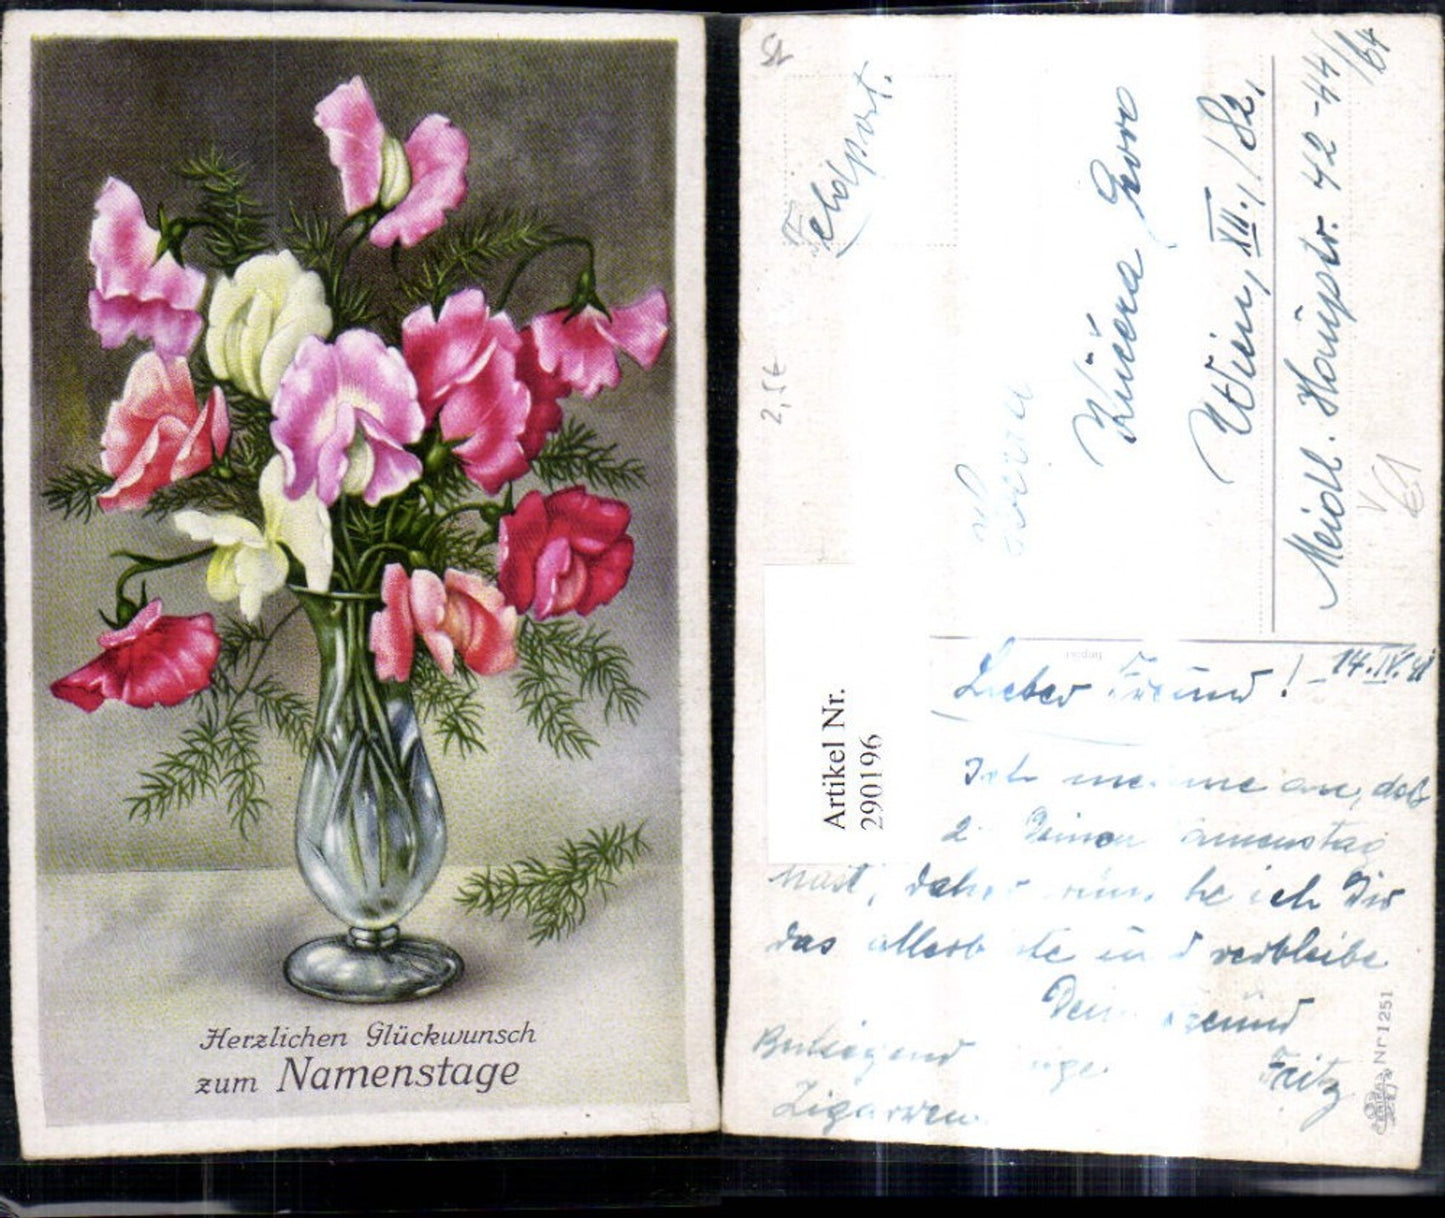 Herzlichen Glückwunsch
zum Namenstage
Feldpost.
Wien, XII./82,
Meidl. Hauptstr. 42-44/
/64
2,5€
Artikel Nr.
290196
Lieber Freund! 14.IV.41
Ich an, daß
Deinen Namenstag
hast, daher ich Dir
das allerbeste und verbleibe
Dein Freund
Fritz
Beiliegend
Zigarren.
Nr 1251